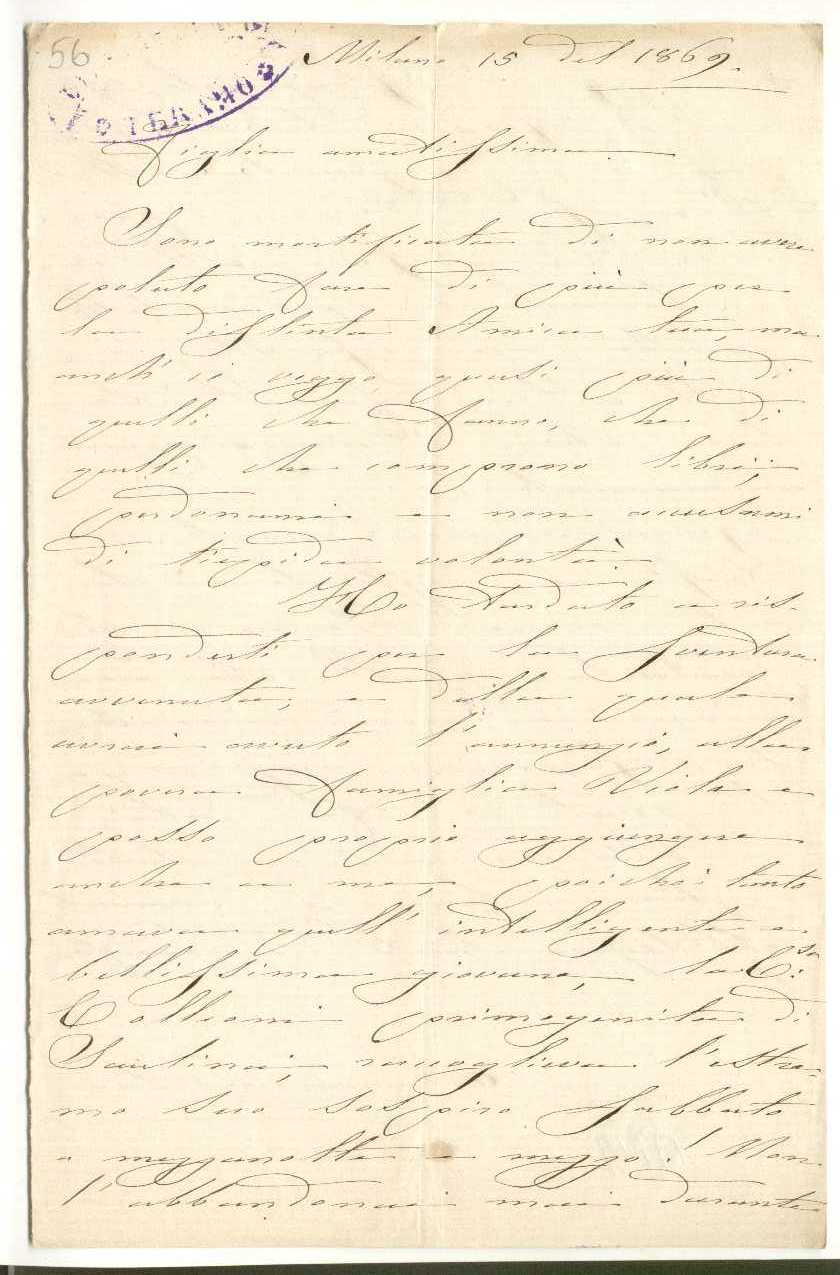 56
TERAMO
Milano 15 del 1869.
Figlia amatissima
Sono mortificata di non avere
potuto fare di più per
la distinta Amica tua, ma
anch'io veggo quasi più di
quelli che fanno, che di
quelli che comprono libri;
perdonami e non accusarmi
di tiepida volontà.
Ho tardato a ris-
ponderti per la sventura
avvenuta, e della quale
avrai avuto l'annunzio, alla
povera famiglia Viola e
posso proprio aggiungere
anche a me, poichè tanto
amava quell'intelligente e
bellissima giovane, la C.sa
Colleoni primogenita di
Saulina, raccoglieva l'estre-
mo suo sospiro Sabbato
a mezzanotte e mezzo! Non
l'abbandonai mai durante